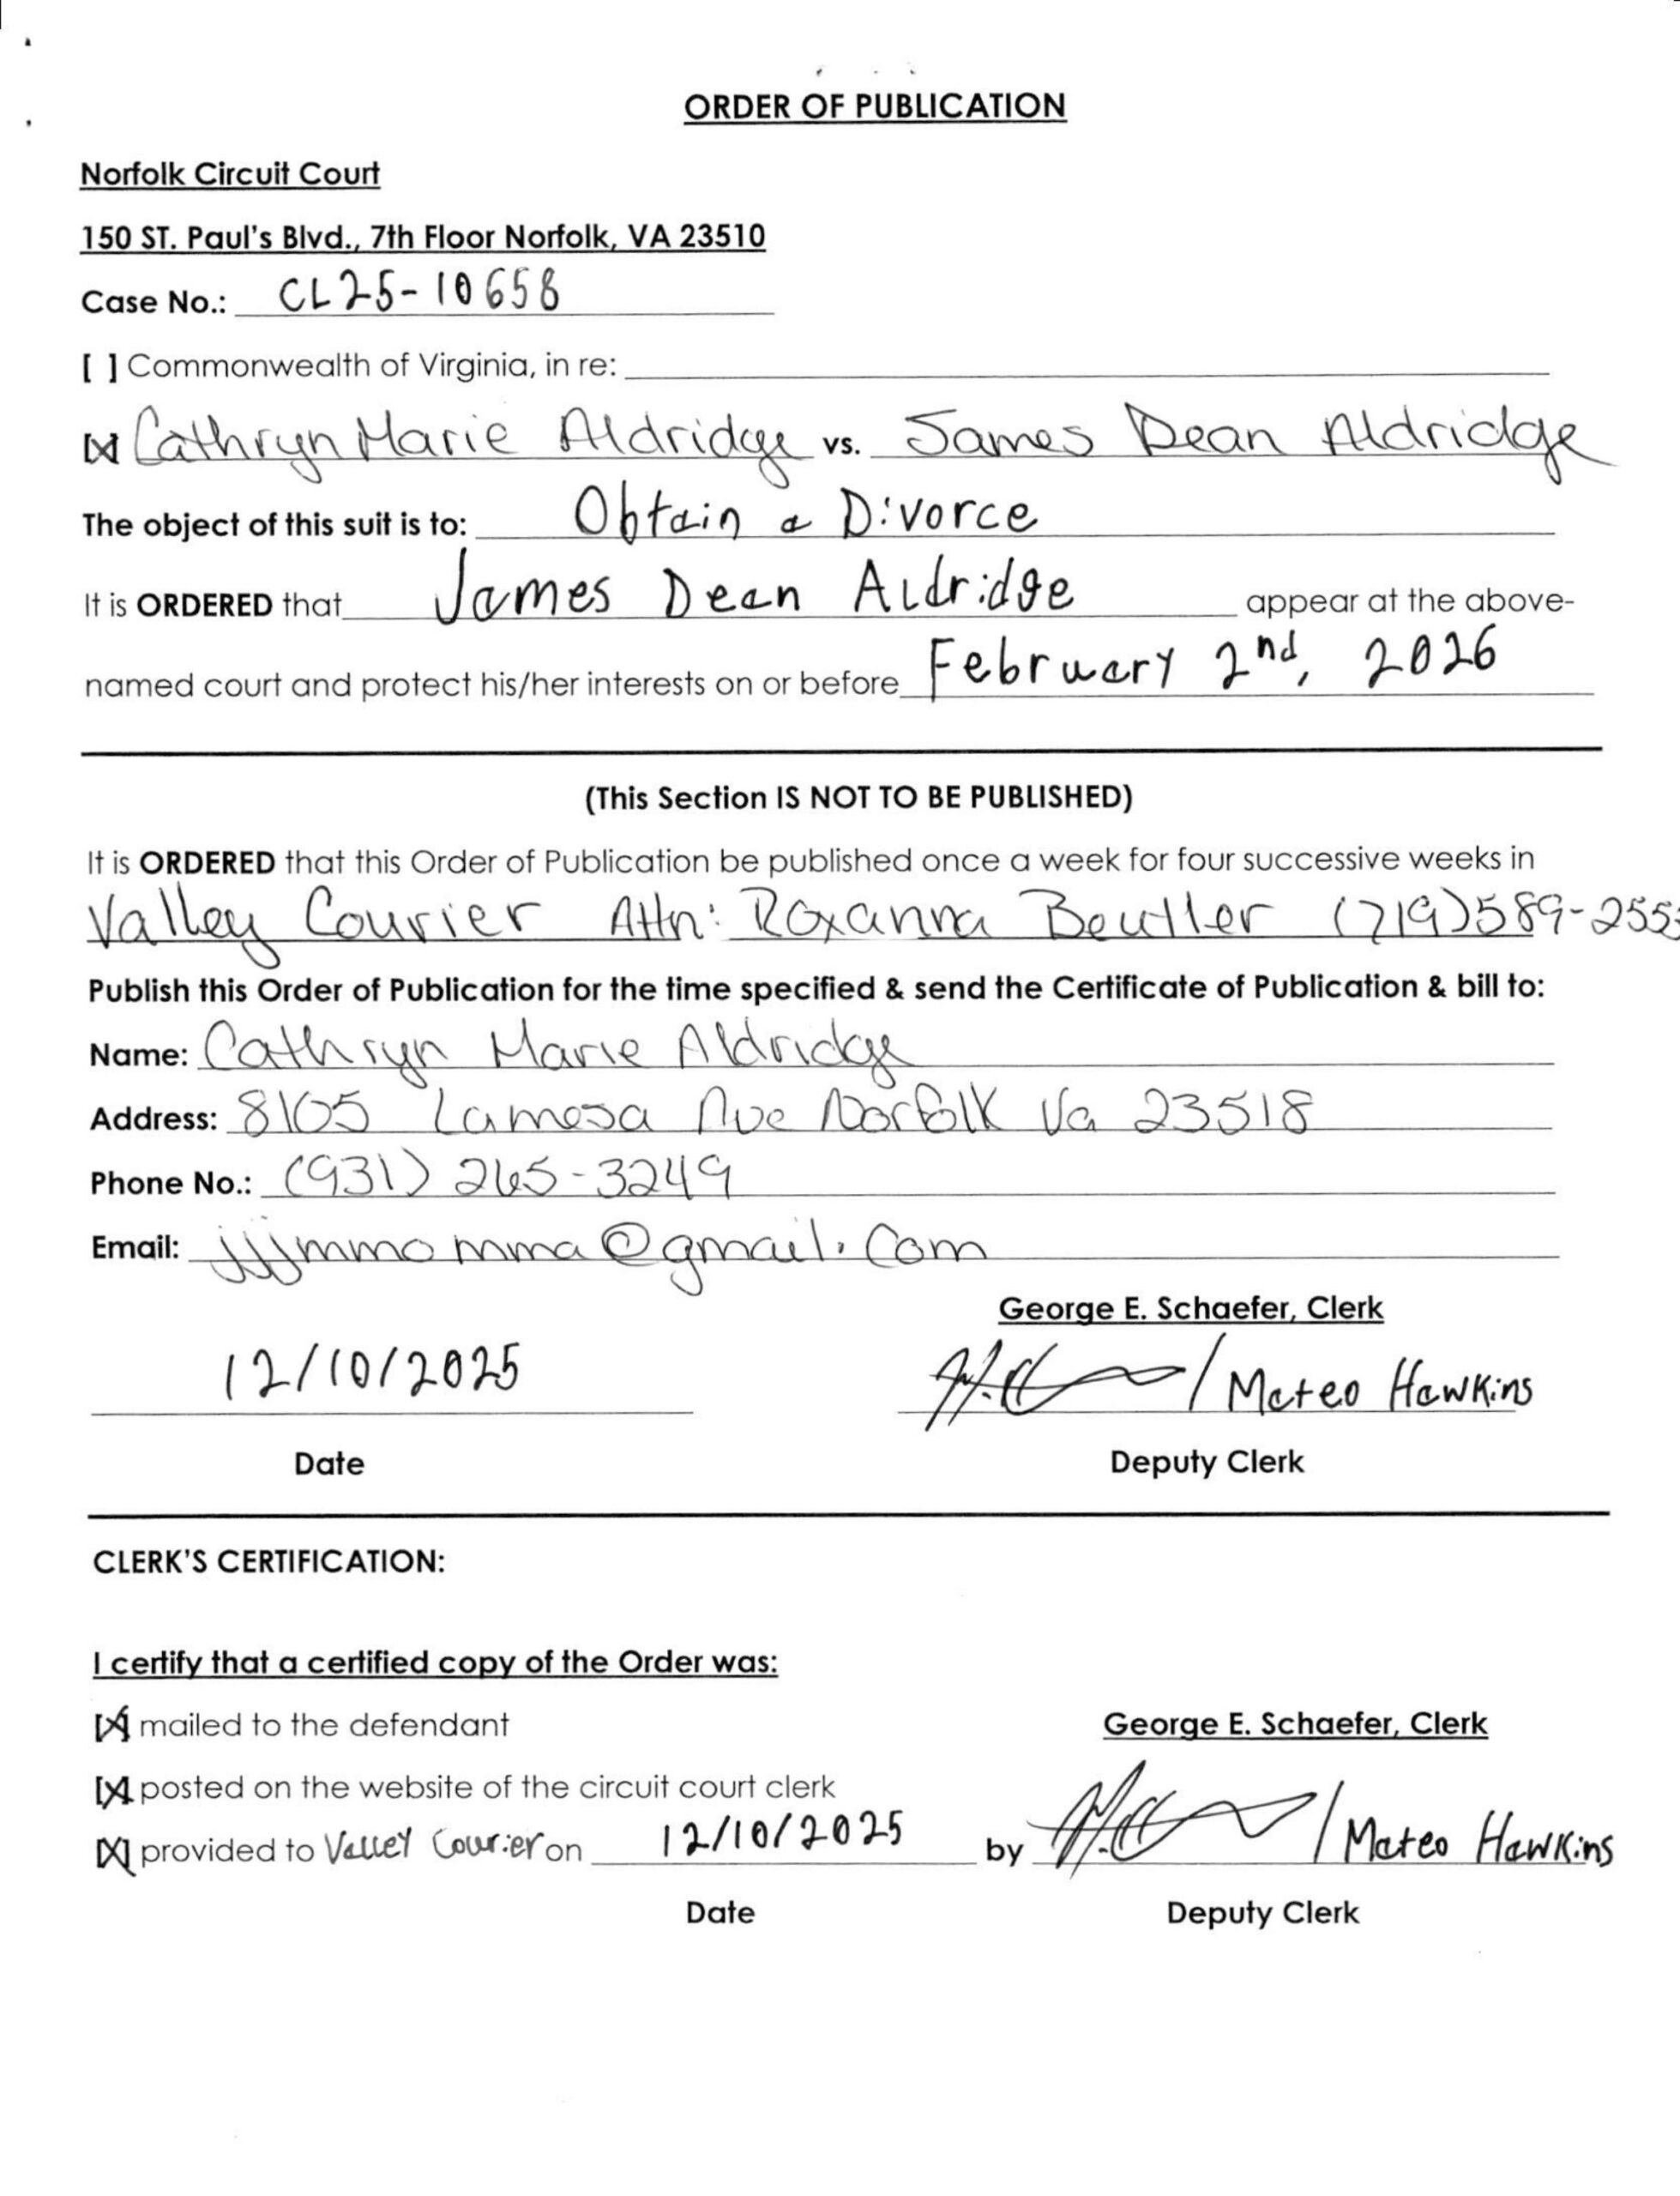 ORDER OF PUBLICATION
Norfolk Circuit Court
150 ST. Paul's Blvd., 7th Floor Norfolk, VA 23510
Case No.: CL25-10658
[ ] Commonwealth of Virginia, in re:
[X] Cathryn Marie Aldridge vs. James Dean Aldridge
The object of this suit is to: Obtain a Divorce
It is ORDERED that James Dean Aldridge appear at the above-
named court and protect his/her interests on or before February 2nd, 2026
(This Section IS NOT TO BE PUBLISHED)
It is ORDERED that this Order of Publication be published once a week for four successive weeks in
Valley Courier Attn: Roxanna Beutler (719)589-255
Publish this Order of Publication for the time specified & send the Certificate of Publication & bill to:
Name: Cathryn Marie Aldridge
Address: 8105 Lamesa Ave Norfolk Va 23518
Phone No.: (931) 265-3249
Email: jjjmmomma@gmail.com
George E. Schaefer, Clerk
12/10/2025 / Mateo Hawkins
Date Deputy Clerk
CLERK'S CERTIFICATION:
I certify that a certified copy of the Order was:
[X] mailed to the defendant George E. Schaefer, Clerk
[X] posted on the website of the circuit court clerk
[X] provided to Valley Courier on 12/10/2025 by / Mateo Hawkins
Date Deputy Clerk